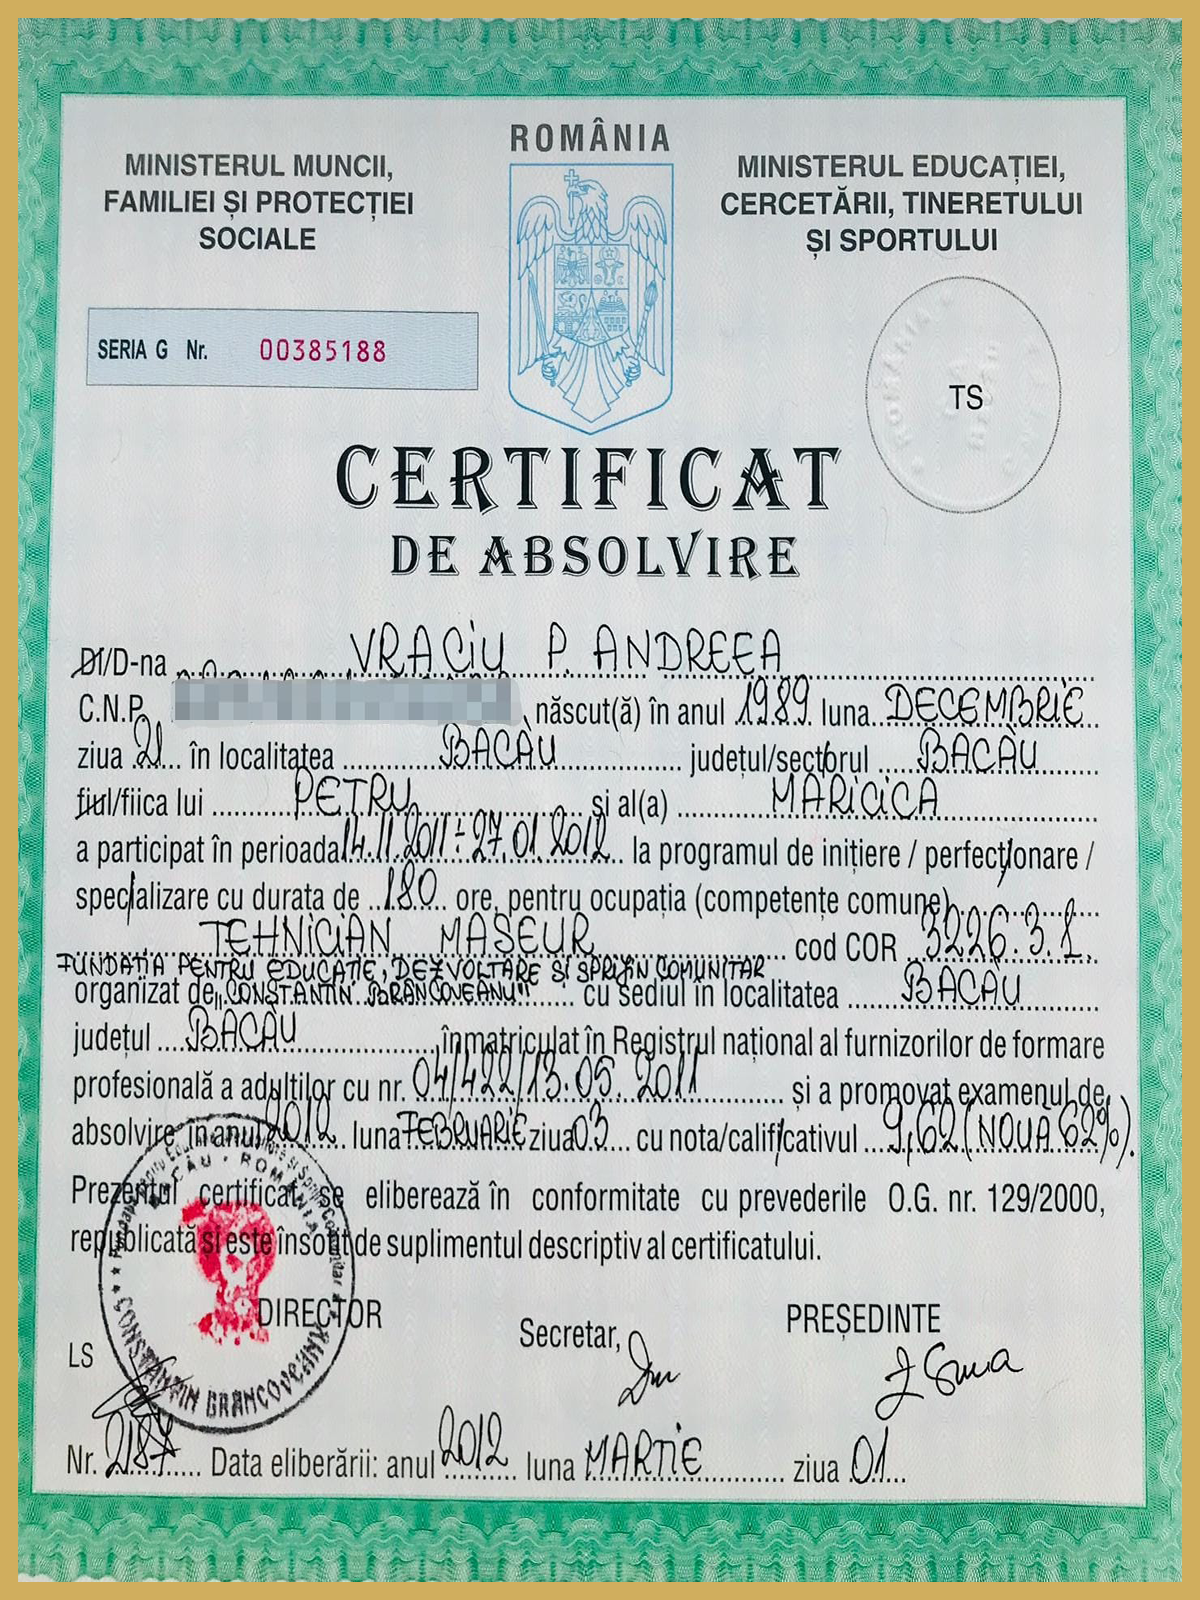 ROMÂNIA
MINISTERUL MUNCII,
FAMILIEI ȘI PROTECȚIEI
SOCIALE
MINISTERUL EDUCAȚIEI,
CERCETĂRII, TINERETULUI
ȘI SPORTULUI
SERIA G Nr. 00385188
TS
CERTIFICAT
DE ABSOLVIRE
Dl/D-na VRACIU P. ANDREEA
C.N.P. născut(ă) în anul 1989 luna DECEMBRIE
ziua 21 în localitatea BACĂU județul/sectorul BACĂU
fiul/fiica lui PETRU și al(a) MARICICA
a participat în perioada 14.11.2011÷27.01.2012 la programul de inițiere / perfecționare /
specializare cu durata de 180 ore, pentru ocupația (competențe comune)
TEHNICIAN MASEUR cod COR 3226.3.1.
FUNDAȚIA PENTRU EDUCAȚIE, DEZVOLTARE ȘI SPRIJIN COMUNITAR
organizat de „CONSTANTIN BRÂNCOVEANU" cu sediul în localitatea BACĂU
județul BACĂU înmatriculat în Registrul național al furnizorilor de formare
profesională a adulților cu nr. 04/422/13.05.2011 și a promovat examenul de
absolvire în anul 2012 luna FEBRUARIE ziua 03 cu nota/calificativul 9,62 (NOUĂ 62%).
Prezentul certificat se eliberează în conformitate cu prevederile O.G. nr. 129/2000,
republicată și este însoțit de suplimentul descriptiv al certificatului.
BACĂU · ROMÂNIA
CONSTANTIN BRÂNCOVEANU
DIRECTOR
Secretar,
PREȘEDINTE
LS
Nr. 2187 Data eliberării: anul 2012 luna MARTIE ziua 01